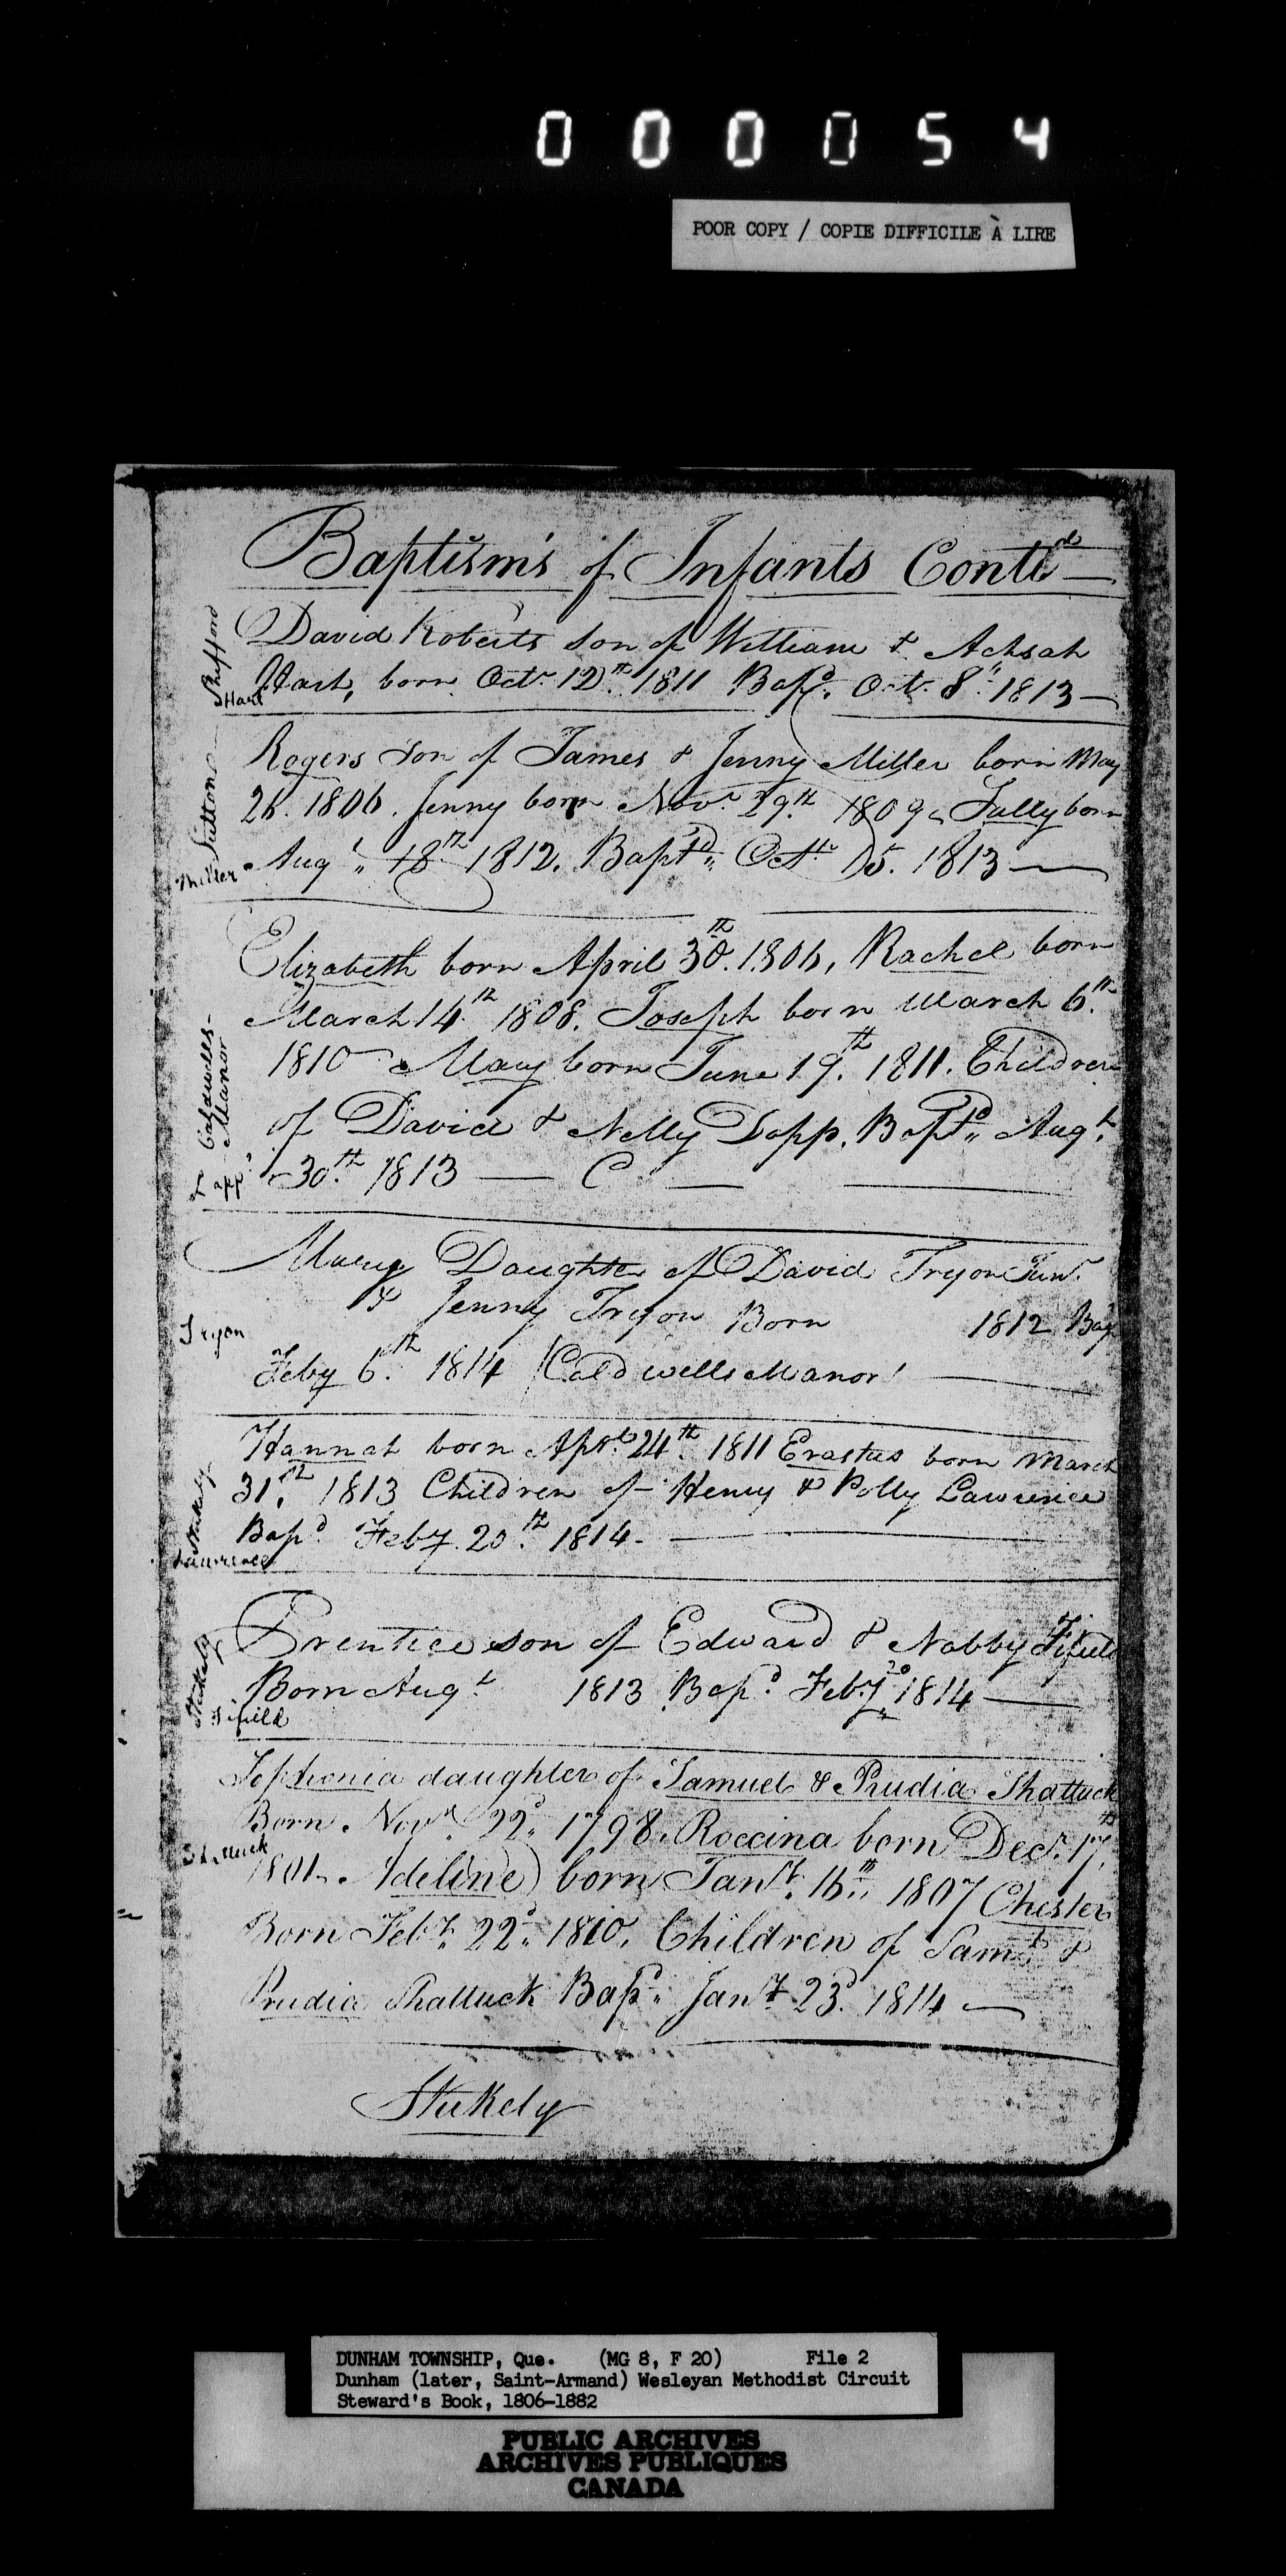 000054
POOR COPY / COPIE DIFFICILE À LIRE
Baptism's of Infants Contd
Shefford
David Roberts son of William & Achsah
Hart
Hart, born Octr 12th 1811 Bapd. Oct. 8th 1813 —
Sutton
Rogers son of James & Jenny Miller born May
26. 1806. Jenny born Novr 29th 1809 Sally born
Miller
Augt 18th 1812. Baptd Octr 15. 1813 —
Elizabeth born April 30th. 1806, Rachel born
March 14th 1808. Joseph born March 6th
Caldwells Manor
1810 Mary born June 19th. 1811. Children
of David & Nelly Sapp. Baptd Augt
30th 1813 —
Mary Daughter of David Tryon Junr
Tryon
& Jenny Tryon Born 1812 Bap
Feby 6th 1814 Caldwells Manor
Stukely
Hannah born Aprl 24th. 1811 Erastus born March
31st, 1813 Children of Henry & Polly Lawrence
Lawrence
Bapd Feby. 20th 1814 -
Stukely
Prentice son of Edward & Nabby Fifield
Fifield
Born Augt 1813 Bapd Feby 20 1814 —
Sophronia daughter of Samuel & Prudia Shattuck
Born Novr 22d 1798. Roccina born Decr. 17th
Shattuck
1801. Adeline born Jany. 16th 1807 Chester
Born Feby. 22d 1810. Children of Saml &
Prudia Shattuck Bapd Jany 23d. 1814 —
Stukely
DUNHAM TOWNSHIP, Que. (MG 8, F 20) File 2
Dunham (later, Saint-Armand) Wesleyan Methodist Circuit
Steward's Book, 1806-1882
PUBLIC ARCHIVES
ARCHIVES PUBLIQUES
CANADA